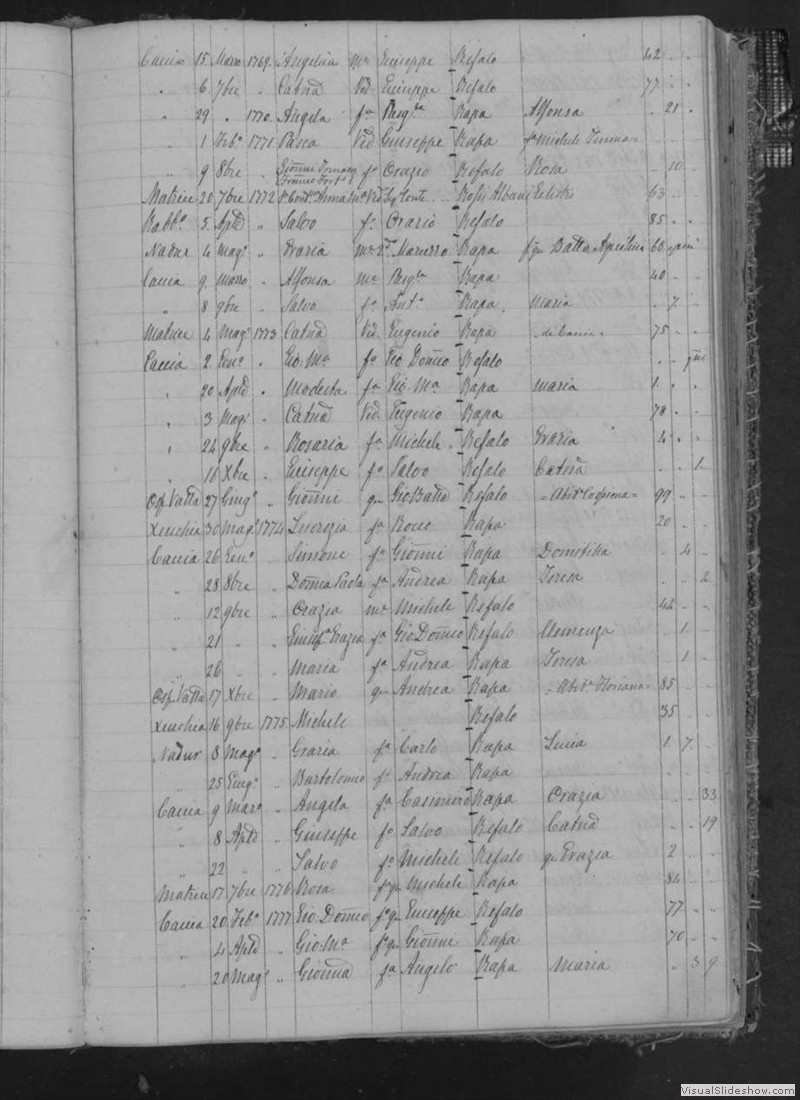 Caccia 15 Marzo 1769 Angelica Mᵉ Giuseppe Refalo 42 " "
" 6 7bre " Catnā Vid Giuseppe Refalo 77 " "
" 29 " 1770 Angela fᵃ Pasqˡᵉ Rapa Alfonsa " 21 "
" 1 Febº 1771 Pasca Vid Giuseppe Rapa Michele
" 9 8bre " Gionni fº Orazio Refalo Rosa " 10 "
Matrice 20 7bre 1772 Vid Albani 63 " "
Rabbº 5 Aple " Salvo fº Orazio Refalo 85 " "
Nadur 4 Magº " Grazia Mᵉ Rapa Battᵃ 66
Caccia 9 Marzo " Alfonsa Mᵉ Pasqˡᵉ Rapa 40 " "
" 8 9bre " Salvo fº Antº Rapa Maria " 7 "
Matrice 4 Magº 1773 Catnā Vid Eugenio Rapa de Caccia 75 " "
Caccia 2 Genº " Gio: Mᵃ fº Gio Domco Refalo
" 20 Aple " Modesta fᵃ Gio Mᵃ Rapa Maria 1 " "
" 3 Magº " Catnā Vid Eugenio Rapa 78 " "
" 24 9bre " Rosaria fᵃ Michele Refalo Grazia 4 " "
" 16 Xbre " Giuseppe fº Salvo Refalo Catnā " " 1
Osp. Vattᵃ 27 Giugº " Gionni qm GioBattᵃ Refalo = Abitᵉ Cospicua = 99 " "
Xeuchia 30 Magº 1774 Lucrezia fᵃ Rocco Rapa 20 " "
Caccia 26 Genº " Simone fº Gionni Rapa Domitilla " 4 "
" 28 8bre " Domca Paola fᵃ Andrea Rapa Teresa " " 2
" 12 9bre " Orazia Mᵉ Michele Refalo 42 " "
" 21 " " Giusepᵃ Grazia fᵃ Gio Domco Refalo Clemenza " 1 "
" 26 " " Maria fᵃ Andrea Rapa Teresa " 1 "
Osp. Vattᵃ 17 Xbre " Mario qm Andrea Rapa = Abitᵉ Floriana 85 " "
Xeuchia 16 9bre 1775 Michele Refalo 35 " "
Nadur 8 Magº " Grazia fᵃ Carlo Rapa Lucia 1 7 "
" 25 Giugº " Bartolomeo fº Andrea Rapa
Caccia 9 Marzº " Angela fᵃ Casimiro Rapa Orazia " " 33
" 8 Aple " Giuseppe fº Salvo Refalo Catnā " " 19
" 22 " " Salvo fº Michele Refalo qm Grazia 2 " "
Matrice 17 7bre 1776 Rosa fᵃ qm Michele Rapa 84 " "
Caccia 20 Febº 1777 Gio: Domco fº qm Giuseppe Refalo 77 " "
" 4 Aple " Gio: Mᵃ fº qm Gionni Rapa 70 " "
" 20 Magº " Gionnā fᵃ Angelo Rapa Maria " 3 9
VisualSlideshow.com